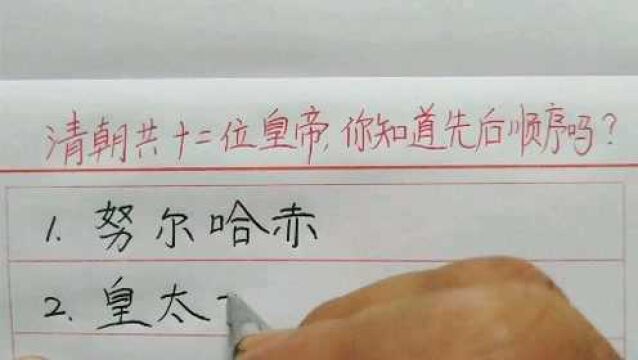 清朝共十二位皇帝,你知道先后顺序吗?
1. 努尔哈赤
2. 皇太